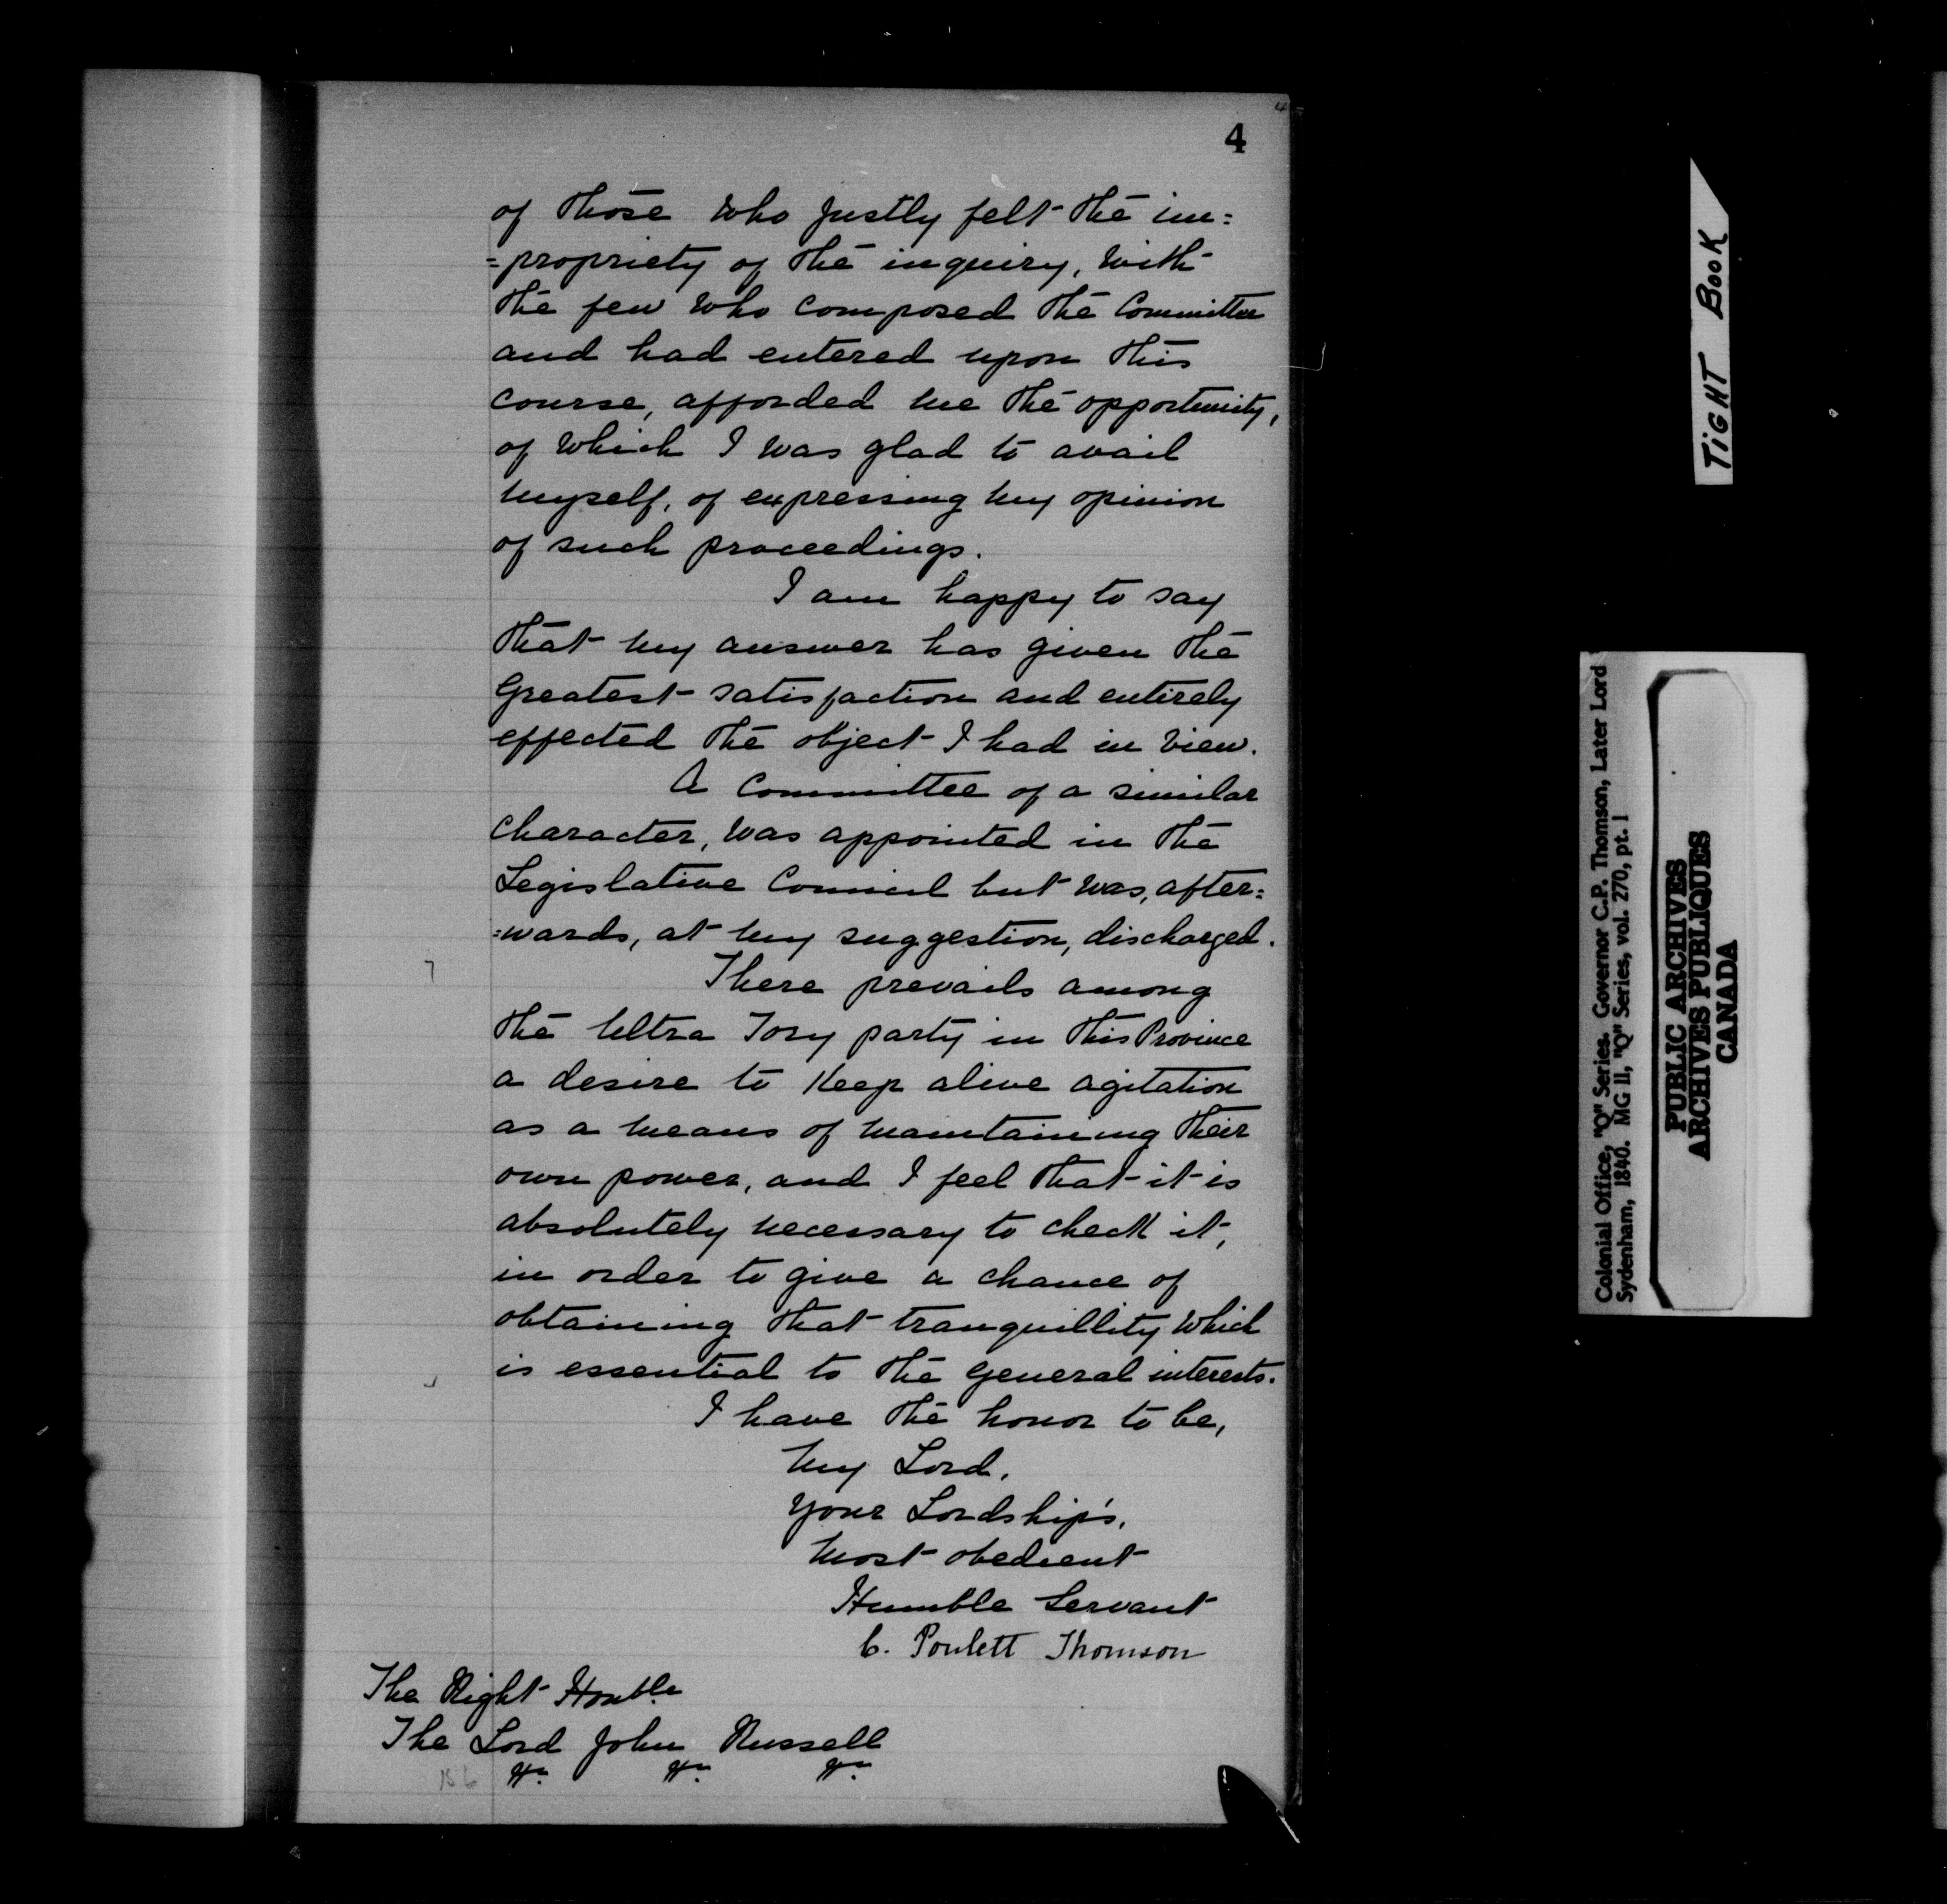 4
of those who justly felt the im=
=propriety of the inquiry, with
the few who composed the Committee
and had entered upon this
course, afforded me the opportunity,
of which I was glad to avail
myself, of expressing my opinion
of such proceedings.
I am happy to say
that my answer has given the
greatest satisfaction and entirely
effected the object I had in view.
A Committee of a similar
character, was appointed in the
Legislative Council but was, after=
=wards, at my suggestion, discharged.
There prevails among
the Ultra Tory party in this Province
a desire to keep alive agitation
as a means of maintaining their
own power, and I feel that it is
absolutely necessary to check it,
in order to give a chance of
obtaining that tranquillity which
is essential to the general interests.
I have the honor to be,
My Lord,
Your Lordship's,
Most obedient
Humble Servant
C. Poulett Thomson
The Right Honble
The Lord John Russell
TIGHT BOOK
Colonial Office, "Q" Series. Governor C.P. Thomson, Later Lord
Sydenham, 1840. MG 11, "Q" Series, vol. 270, pt. 1
PUBLIC ARCHIVES
ARCHIVES PUBLIQUES
CANADA